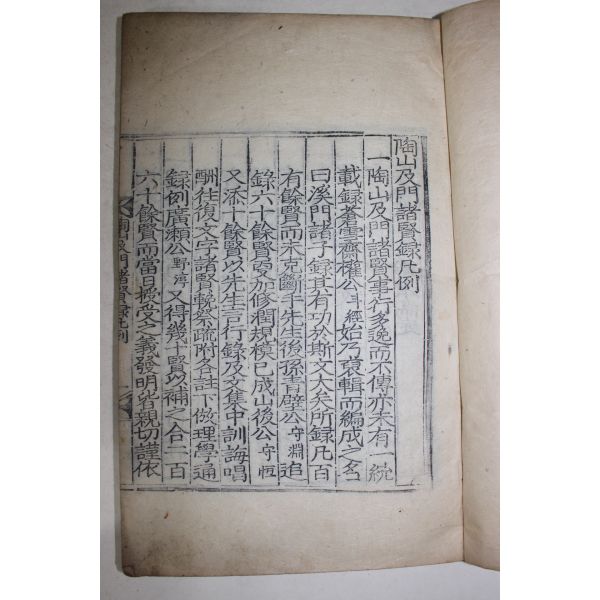 陶山及門諸賢錄凡例
一陶山及門諸賢事行多逸而不傳亦未有一統
載錄蒼雪齋權公斗經始乃裒輯而編成之名
曰溪門諸子錄其有功於斯文大矣所錄凡百
有餘賢而未克斷手先生後孫靑壁公守淵追
錄六十餘賢更加修潤規模已成山後公守恒
又添十餘賢以先生言行錄及文集中訓誨唱
酬往復文字諸賢輓祭疏附各註下倣理學通
錄例廣瀨公野淳又得幾十賢以補之合二百
六十餘賢而當日授受之義發明皆親切謹依
陶山及門諸賢錄凡例